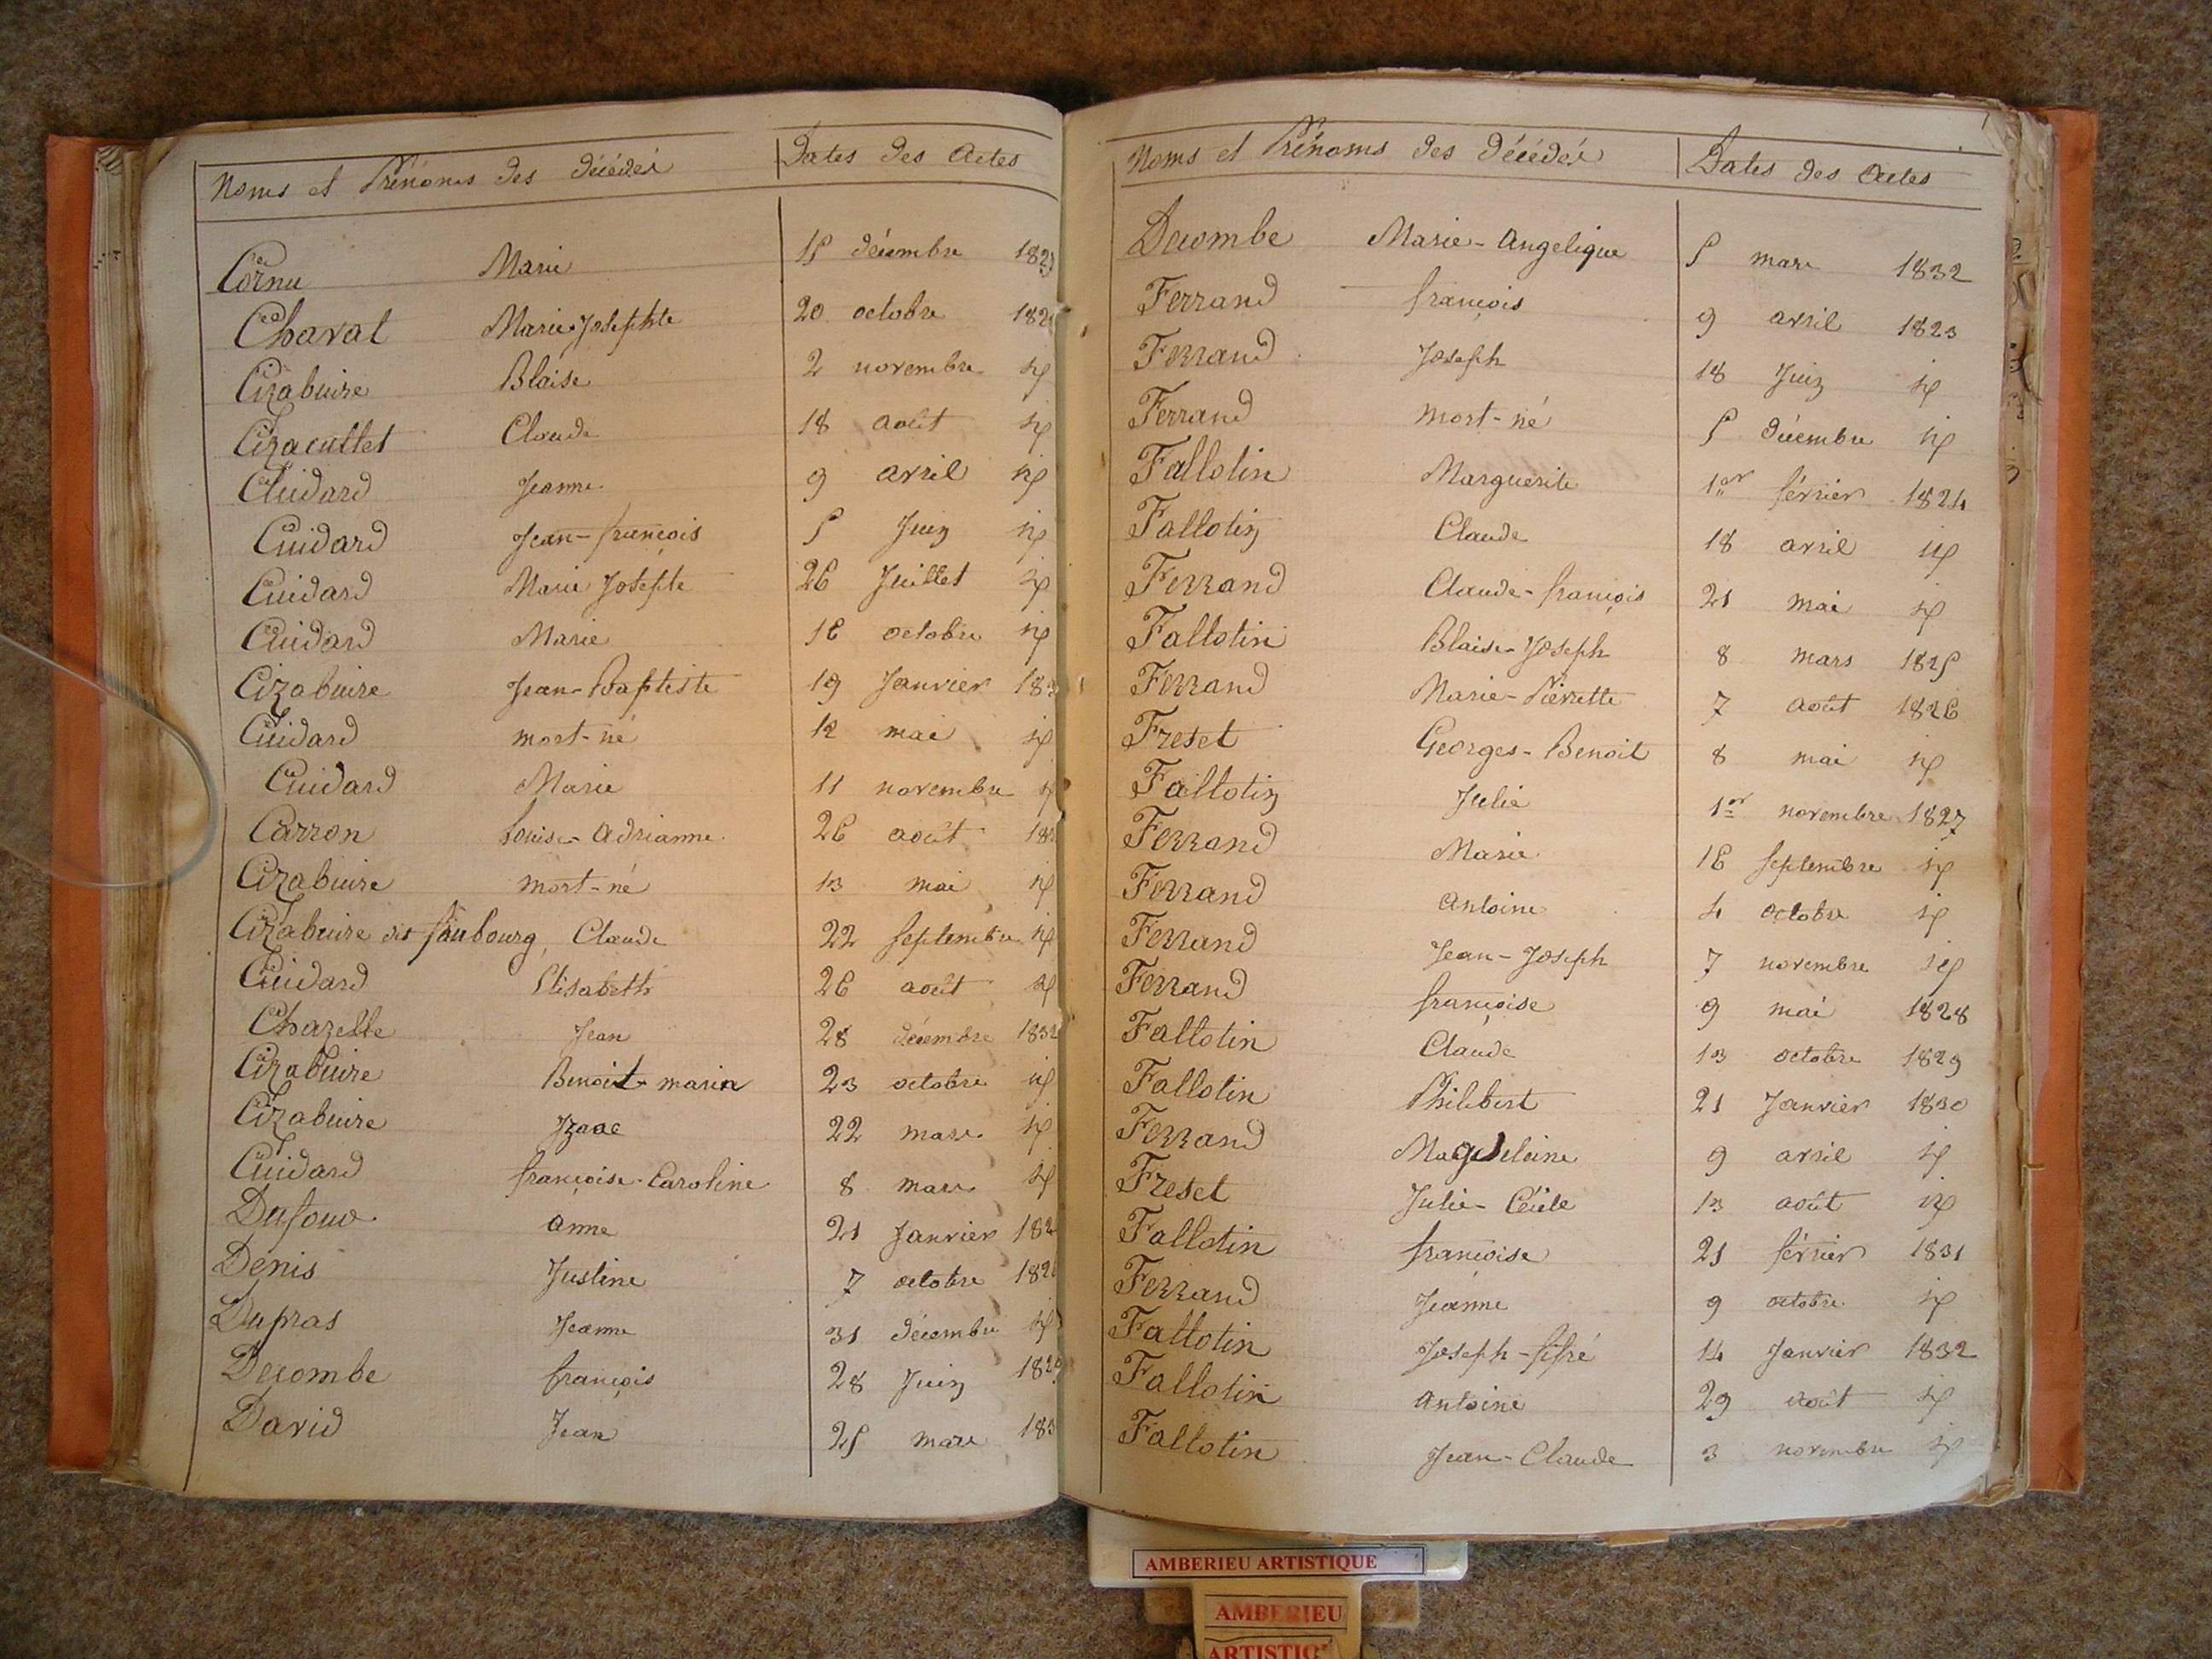 Noms et Prénoms des décédés Dates des Actes
Cornu Marie 15 décembre
Chaval Marie Josephte 20 octobre
Cizabuire Blaise 2 novembre id
Cizacullet Claude 18 août id
Cuidard Jeanne 9 avril id
Cuidard Jean-françois 5 Juin id
Cuidard Marie Josephte 26 Juillet id
Cuidard Marie 16 octobre id
Cizabuire Jean-Baptiste 19 Janvier
Cuidard mort-né 12 mai id
Cuidard Marie 11 novembre
Carron Louise-Adrianne 26 août
Cizabuire mort-né 13 mai id
Cizabuire dit faubourg, Claude 22 septembre id
Cuidard Elisabeth 26 août id
Chazelle Jean 28 décembre 1832
Cizabuire Benoit-maria 23 octobre id
Cizabuire Izaac 22 mars id
Cuidard françoise-Caroline 8 mars id
Dufour anne 21 Janvier
Denis Justine 7 octobre
Dupras Jeanne 31 décembre id
Decombe françois 28 Juin
David Jean 25 mars
Noms et Prénoms des décédés Dates des Actes
Decombe Marie-Angelique 5 mars 1832
Ferrand françois 9 avril 1823
Ferrand Joseph 18 Juin id
Ferrand mort-né 5 décembre id
Fallotin Marguerite 1er février 1824
Fallotin Claude 18 avril id
Ferrand Claude-françois 21 mai id
Fallotin Blaise-Joseph 8 mars 1825
Ferrand Marie-Pierrette 7 août 1826
Freset Georges-Benoit 8 mai id
Fallotin Julie 1er novembre 1827
Ferrand Marie 16 septembre id
Ferrand Antoine 4 octobre id
Ferrand Jean-Joseph 7 novembre id
Ferrand françoise 9 mai 1828
Fallotin Claude 13 octobre 1829
Fallotin Philibert 21 Janvier 1830
Ferrand Magdeleine 9 avril id
Freset Julie-Cécile 13 août id
Fallotin françoise 21 février 1831
Ferrand Jeanne 9 octobre id
Fallotin Joseph-fifré 14 Janvier 1832
Fallotin Antoine 29 août id
Fallotin Jean-Claude 3 novembre id
AMBERIEU ARTISTIQUE
AMBERIEU